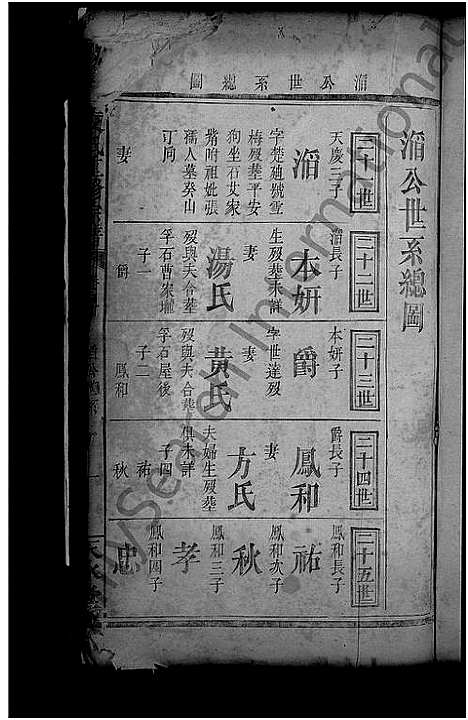 淄公世系總圖
淄公世系總圖
二十一世
天慶三子
淄
字楚廸號雪
梅歿葬平安
狗坐石艾家
嘴附祖妣張
孺人墓癸山
丁向
妻
二十二世
淄長子
本妍
生歿葬未詳
妻
湯氏
歿與夫合葬
孚石曹家壠
子一
爵
二十三世
本妍子
爵
字世達歿
妻
黃氏
歿與夫合葬
孚石屋後
子二
鳳和
二十四世
爵長子
鳳和
妻
方氏
夫婦生歿葬
俱未詳
子四
祐
秋
二十五世
鳳和長子
祐
鳳和次子
秋
鳳和三子
孝
鳳和四子
忠